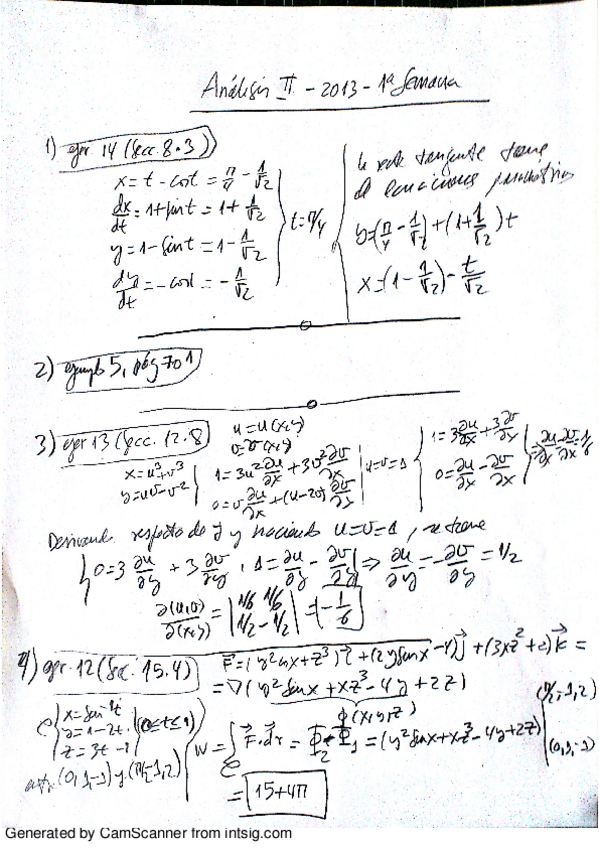 Análisis II - 2013 - 1ª Semana
1) ejer. 14 (Sec. 8.3)
x = t - cost = π/4 - 1/√2
dx/dt = 1 + sint = 1 + 1/√2
y = 1 - sint = 1 - 1/√2
dy/dt = - cost = - 1/√2
t = π/4
la recta tangente tiene
de ecuaciones paramétricas
y = (π/4 - 1/√2) + (1 + 1/√2) t
x = (1 - 1/√2) - t/√2
2) ejemplo 5, pág 701
3) ejer 13 (Secc. 12.8
u = u(x,y)
v = v(x,y)
x = u³ + v³
y = uv - v²
1 = 3u² ∂u/∂x + 3v² ∂v/∂x
0 = v ∂u/∂x + (u - 2v) ∂v/∂x
u = v = 1
1 = 3 ∂u/∂x + 3 ∂v/∂x
0 = ∂u/∂x - ∂v/∂x
⇒ ∂u/∂x = ∂v/∂x = 1/6
Derivando respecto de y y haciendo u = v = 1, se tiene
0 = 3 ∂u/∂y + 3 ∂v/∂y , 1 = ∂u/∂y - ∂v/∂y ⇒ ∂u/∂y = - ∂v/∂y = 1/2
∂(u,v)/∂(x,y) = | 1/6 1/6 1/2 -1/2 | = - 1/6
4) ejer. 12 (Sec. 15.4)
F = (y² cosx + z³) i + (2y senx - 4) j + (3xz² + 2) k =
= ∇(y² senx + xz³ - 4y + 2z)
ϕ(x,y,z)
C x = sen⁻¹t
y = 1 - 2t
z = 3t - 1
(0 ≤ t ≤ 1)
entre (0,1,-1) y (π/2,-1,2)
W = ∫ F·dr = ϕ₂ - ϕ₁ = (y² senx + xz³ - 4y + 2z)
C
(π/2,-1,2)
(0,1,-1)
= 15 + 4π
Generated by CamScanner from intsig.com